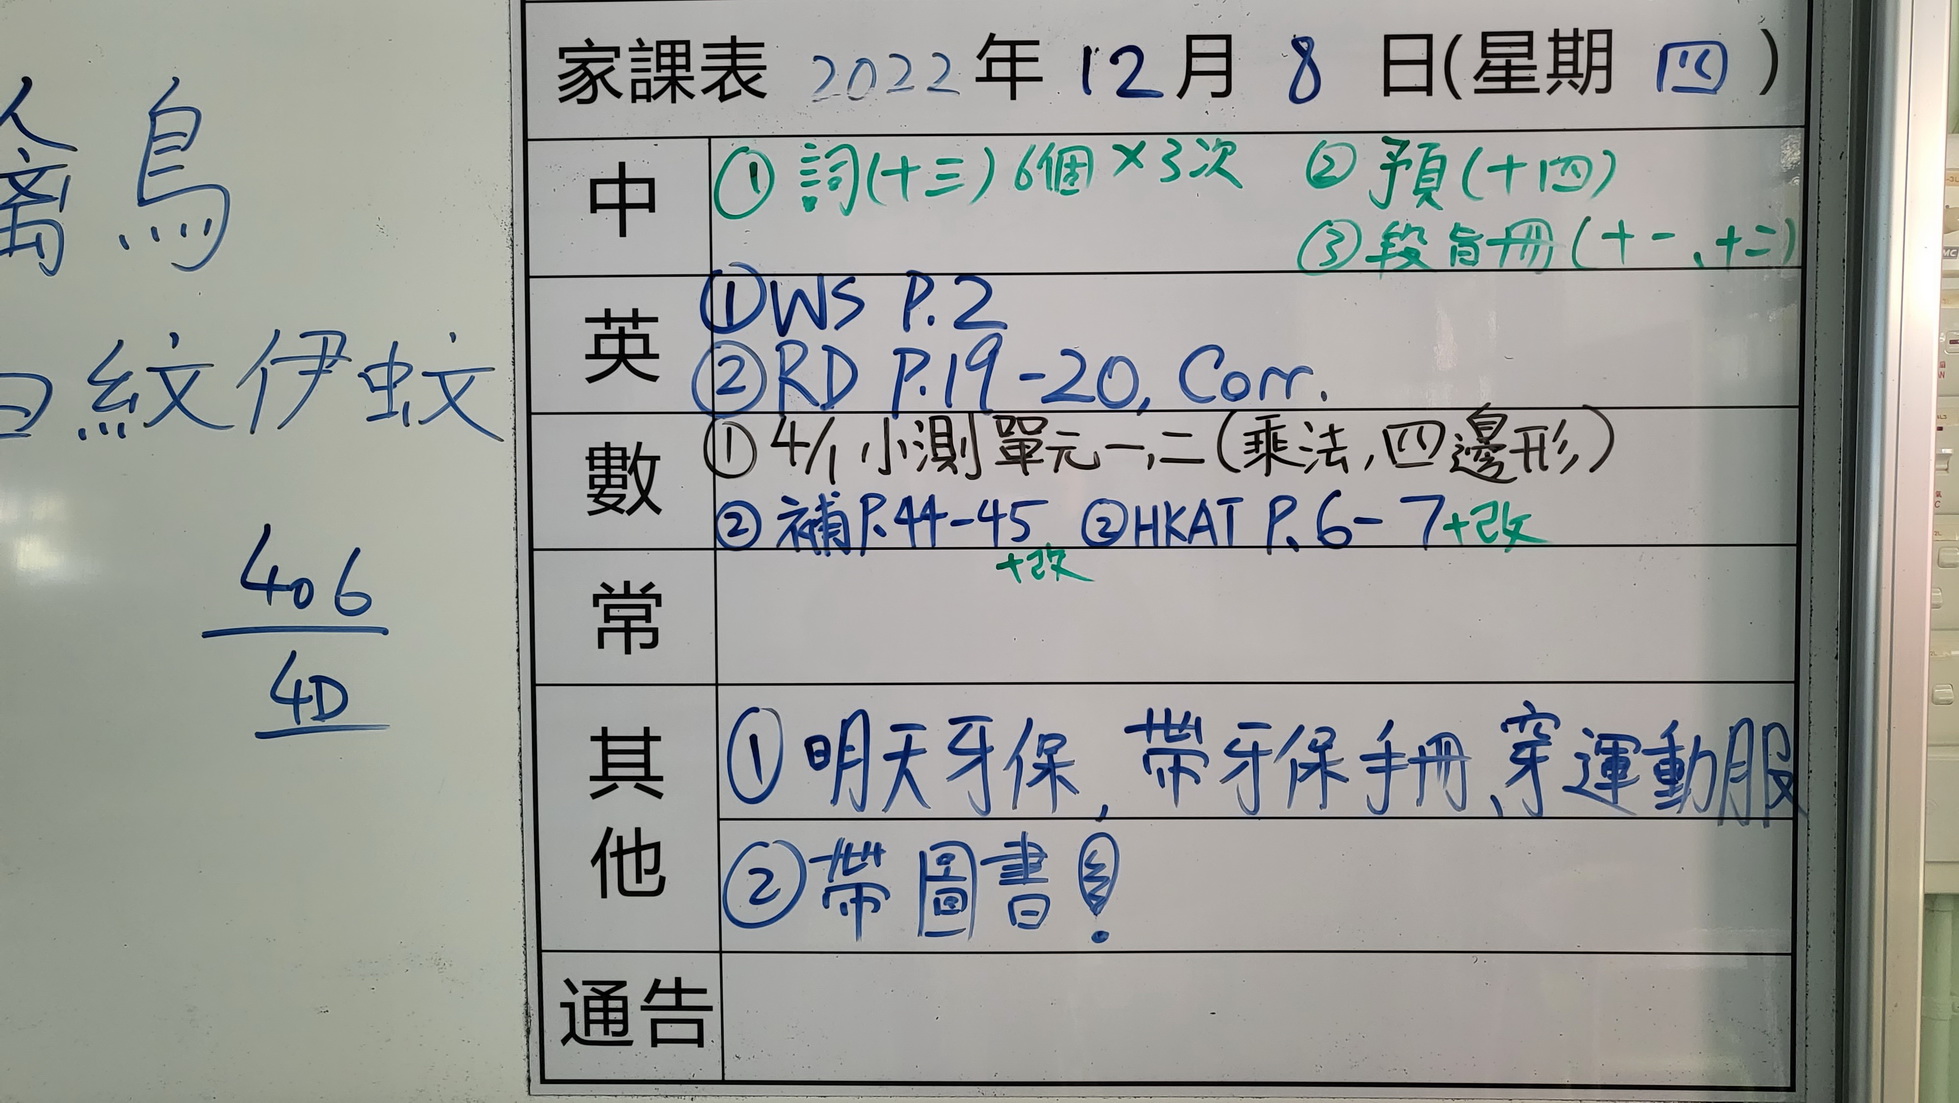 禽鳥
白紋伊蚊
406
4D
家課表 2022年 12月 8 日(星期 四)
中
① 詞(十三) 6個 ×3次 ② 預(十四)
③ 段旨冊(十一、十二)
英
① WS P.2
② RD P.19-20, Corr.
數
① 4/1 小測 單元一,二(乘法,四邊形)
② 補P.44-45 ② HKAT P.6-7+改
+改
常
其他
① 明天牙保, 帶牙保手冊、穿運動服
② 帶圖書!
通告